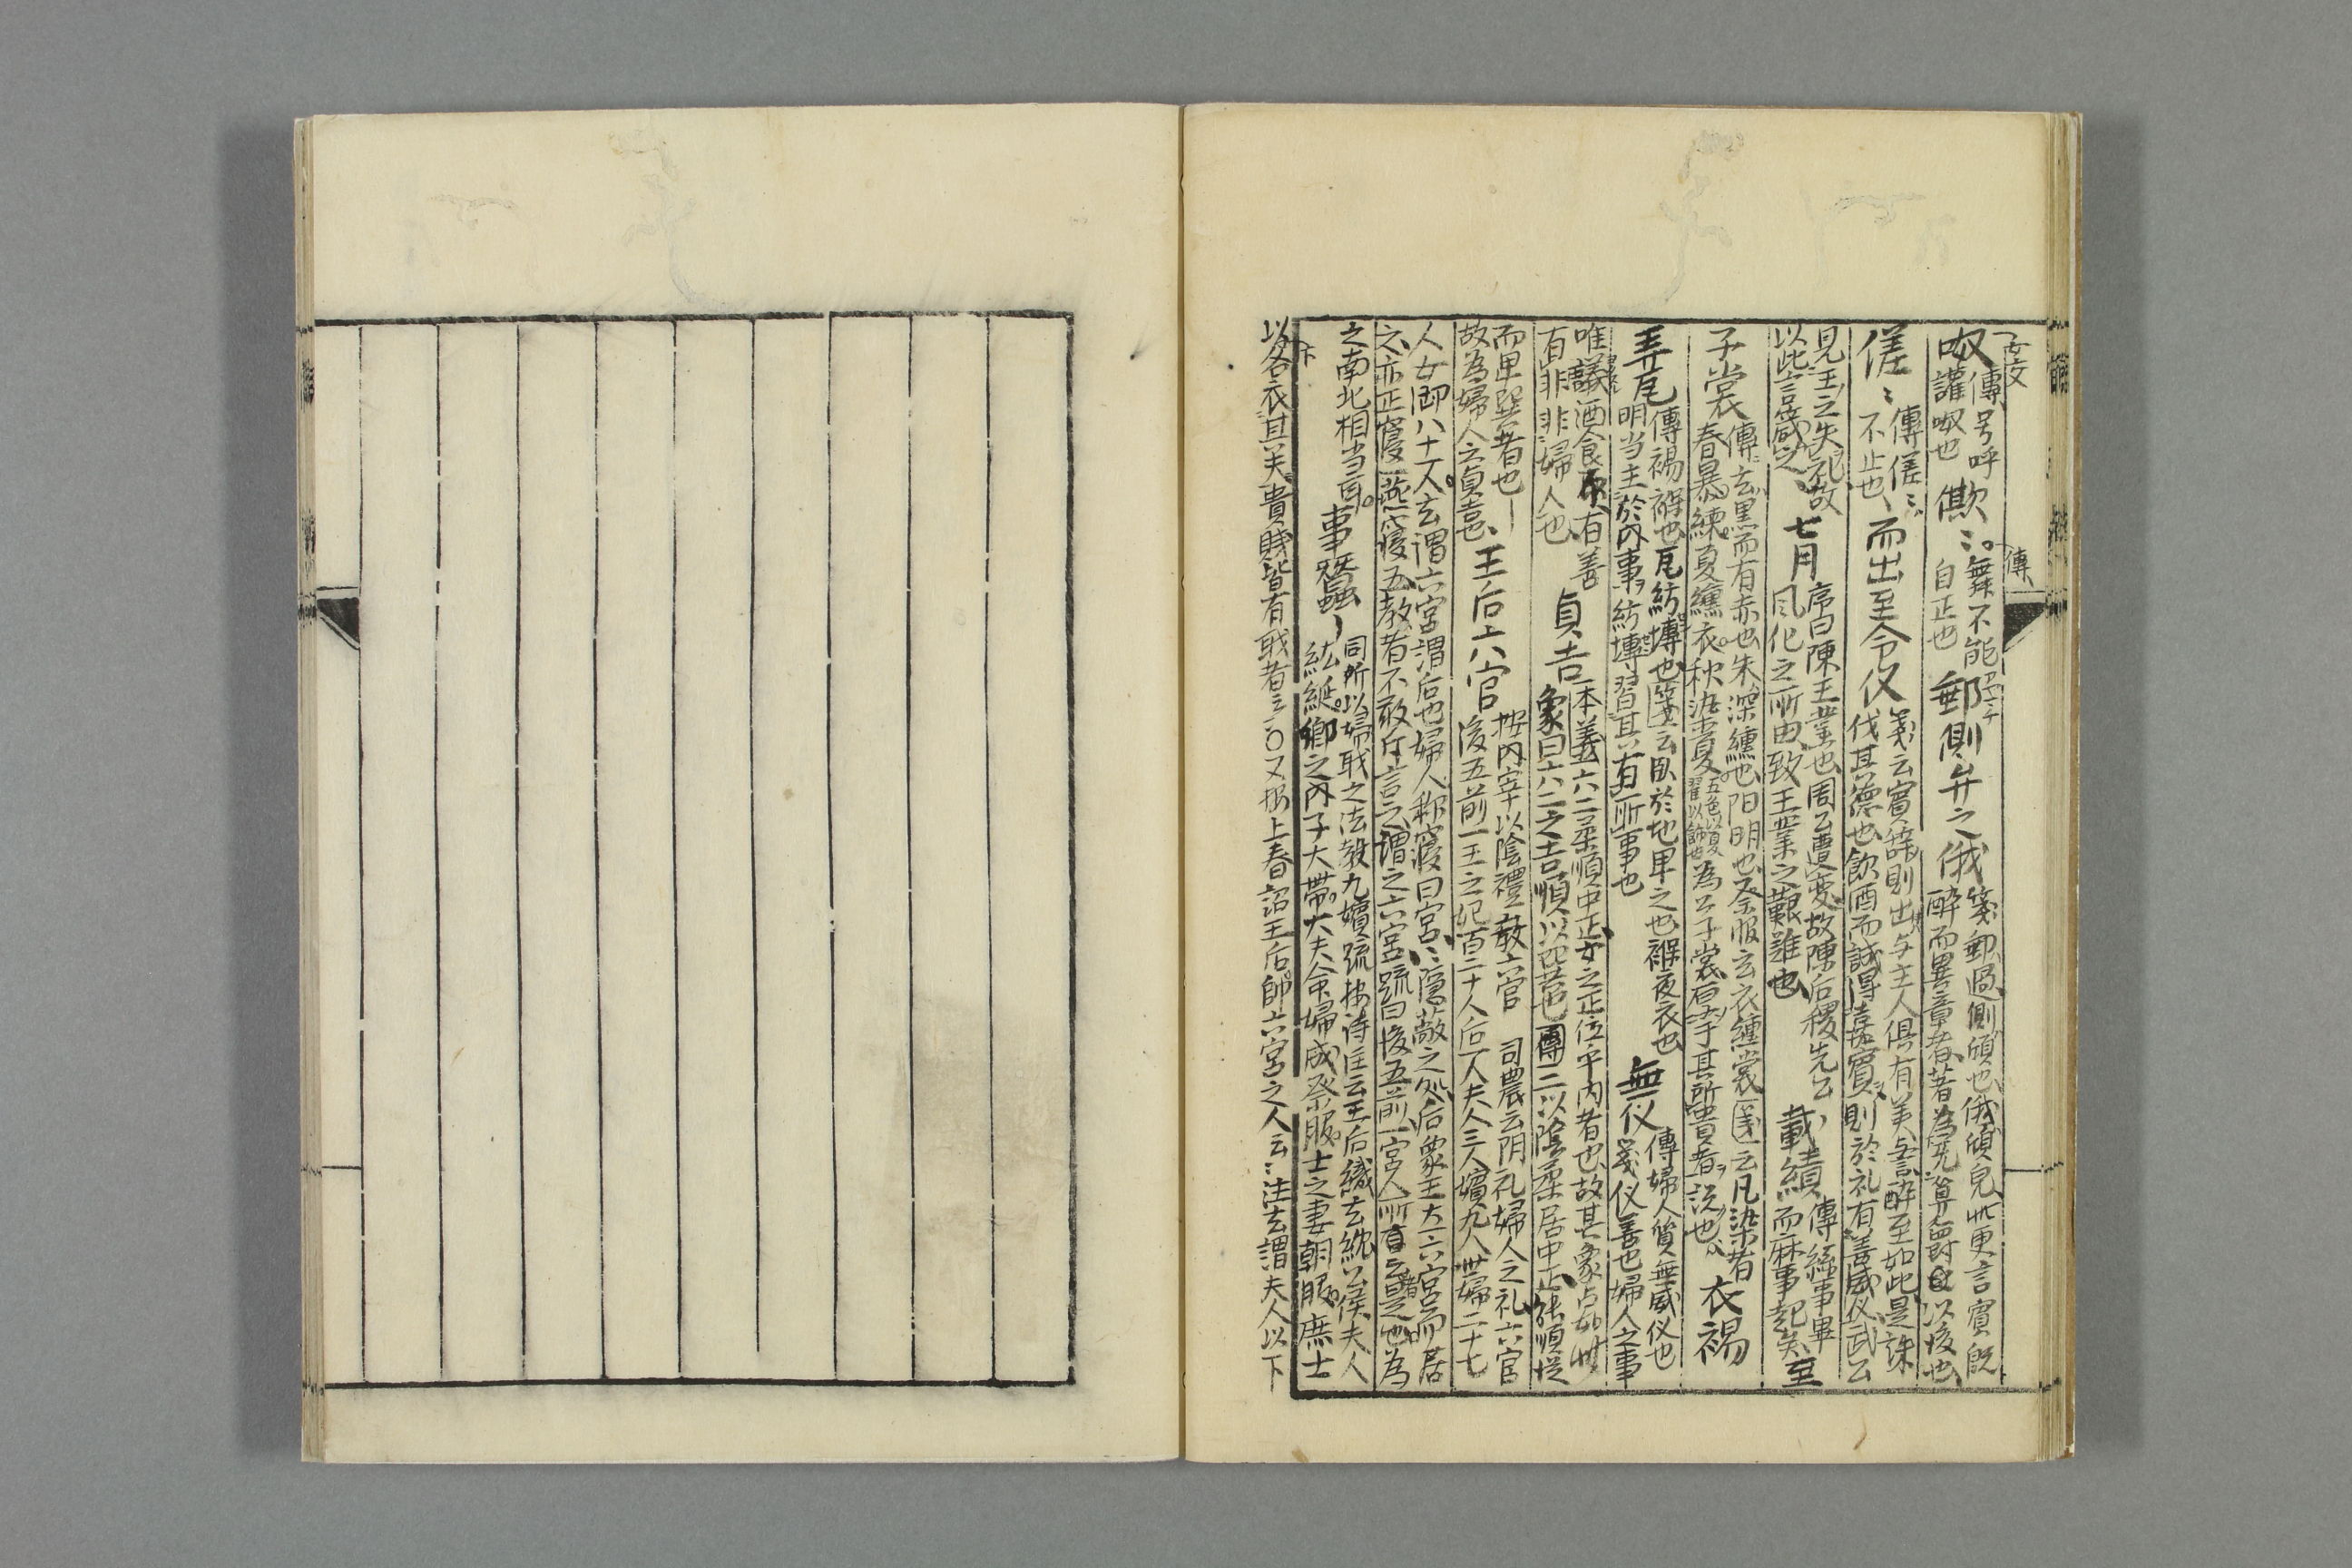 呶 傳号呼
讙呶也
僛ミ 舞不能
自正也
郵 側弁之俄 箋郵過側傾也俄傾皃此更言賓既
醉而異章者著為无筭爵以後也
傞ミ 傳傞ミ
不止也
而出至令仪 箋云賓醉則出与主人俱有美誉醉至如此是誅
伐其德也飲酒而誠得嘉賓則於礼有善威仪武公
見王之失礼故
以此言箴之
七月 序曰陳王業也周公遭変故陳后稷先公
風化之所由致王業之艱難也
載績 傳絲事畢
而麻事起矣
至
子裳 傳玄黒而有赤也朱深纁也阳明也又祭服玄衣纁裳箋云凡染者
春暴練夏纁衣秋染夏五色以夏翟以飾也為公子裳厚于其所貴者説也
衣裼
弄瓦 傳裼褓也瓦紡塼也箋云臥於地卑之也褓夜衣也
明当主於内事紡塼習其有所事也
無仪 傳婦人質無威仪也
箋仪善也婦人之事
唯議酒食有善
有非非婦人也
貞吉 本義六二柔順中正女之正位乎内者也故其象占如此
象曰六二之吉順以巽也傳二以陰柔居中正能順従
而卑巽者也
故為婦人之貞吉
王后六官 按内宰以陰禮教六宮 司農云阴礼婦人之礼六宮
後五前一王之妃百二十人后一人夫人三人嬪九人世婦二十七
人女御八十人玄謂六宮謂后也婦人称寝曰宮ミ隠蔽之処后象王立六宮而居
之亦正寝一燕寝五教者不敢斥言之謂之六宮疏曰後五前一宮人所
之南北相当耳
事蠶 同所以婦職之法教九嬪疏按诗注云王后織玄紞公侯夫人
紘綖卿之内子大帯大夫命婦成祭服士之妻朝服庶士
以下各衣其夫貴賤皆有職者云〇又按上春詔王后帥六宮之人云ミ注云謂夫人以下